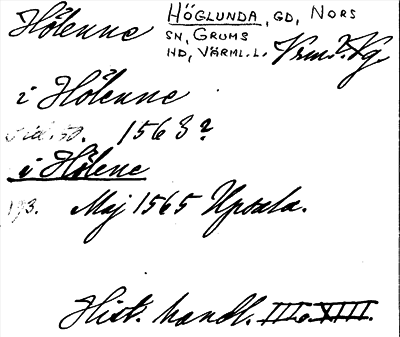 Hölenne HÖGLUNDA, GD, NORS
SN, GRUMS
HD, VÄRML.L. Vrml. Kg.
i Hölenne
sid. 50. 1563?
i Hölene
193. Maj 1565 Upsala.
Hist. handl. III o. XIII.